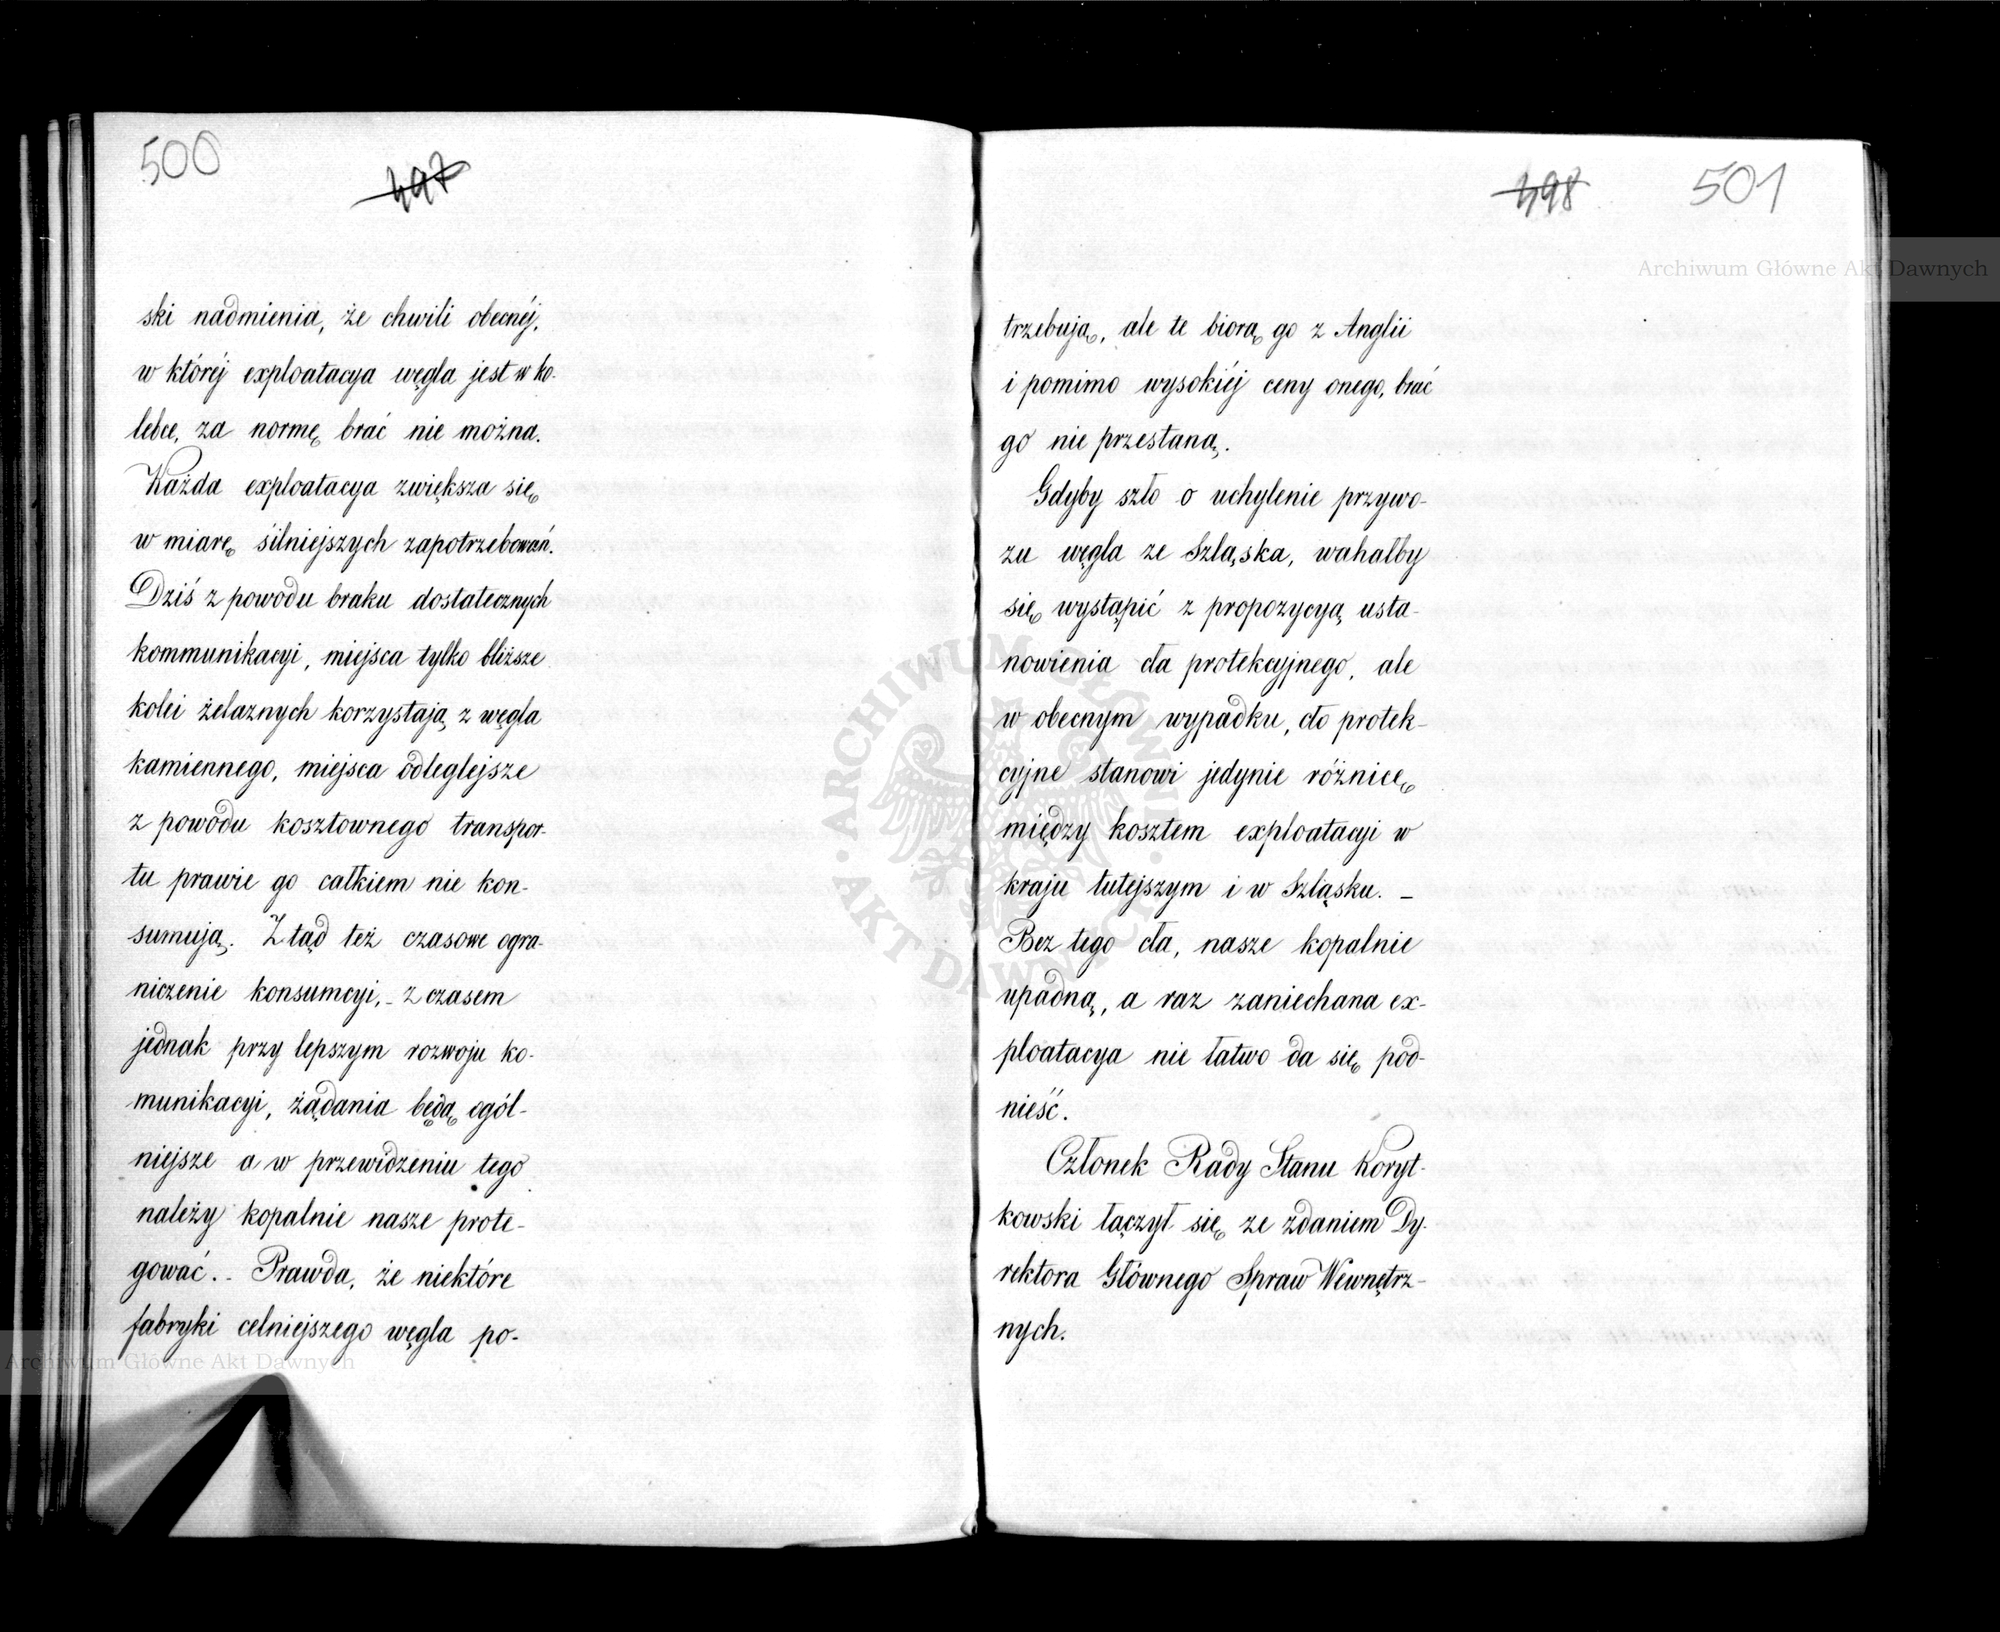 500
497
ski nadmienia, że chwili obecnéj,
w któréj exploatacya węgla jest w ko-
lebce, za normę brać nie można.
Każda exploatacya zwiększa się
w miarę silniejszych zapotrzebowań.
Dziś z powodu braku dostatecznych
kommunikacyi, miejsca tylko bliższe
kolei żelaznych korzystają z węgla
kamiennego, miejsca odleglejsze
z powodu kosztownego transpor-
tu prawie go całkiem nie kon-
sumują. Ztąd też czasowe ogra-
niczenie konsumcyi, – z czasem
jednak przy lepszym rozwoju ko-
munikacyi, żądania będą ogól-
niejsze a w przewidzeniu tego
należy kopalnie nasze prote-
gować. – Prawda, że niektóre
fabryki celniejszego węgla po-
498
501
trzebują, ale te biorą go z Anglii
i pomimo wysokiéj ceny onego, brać
go nie przestaną.
Gdyby szło o uchylenie przywo-
zu węgla ze Szląska, wahałby
się wystąpić z propozycyą usta-
nowienia cła protekcyjnego, ale
w obecnym wypadku, cło protek-
cyjne stanowi jedynie różnicę
między kosztem exploatacyi w
kraju tutejszym i w Szląsku. –
Bez tego cła, nasze kopalnie
upadną, a raz zaniechana ex-
ploatacya nie łatwo da się pod-
nieść.
Członek Rady Stanu Koryt-
kowski łączył się ze zdaniem Dy-
rektora Głównego Spraw Wewnętrz-
nych.
Archiwum Główne Akt Dawnych
Archiwum Główne Akt Dawnych
ARCHIWUM GŁÓWNE · AKT DAWNYCH ·